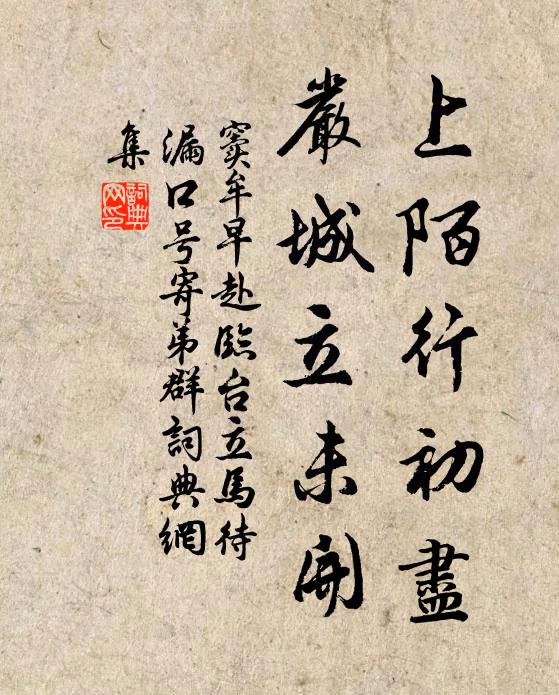 上陌行初盡
嚴城立未開
竇牟早赴臨台立馬待
漏口号寄弟群詞典網
集
詞典
网印